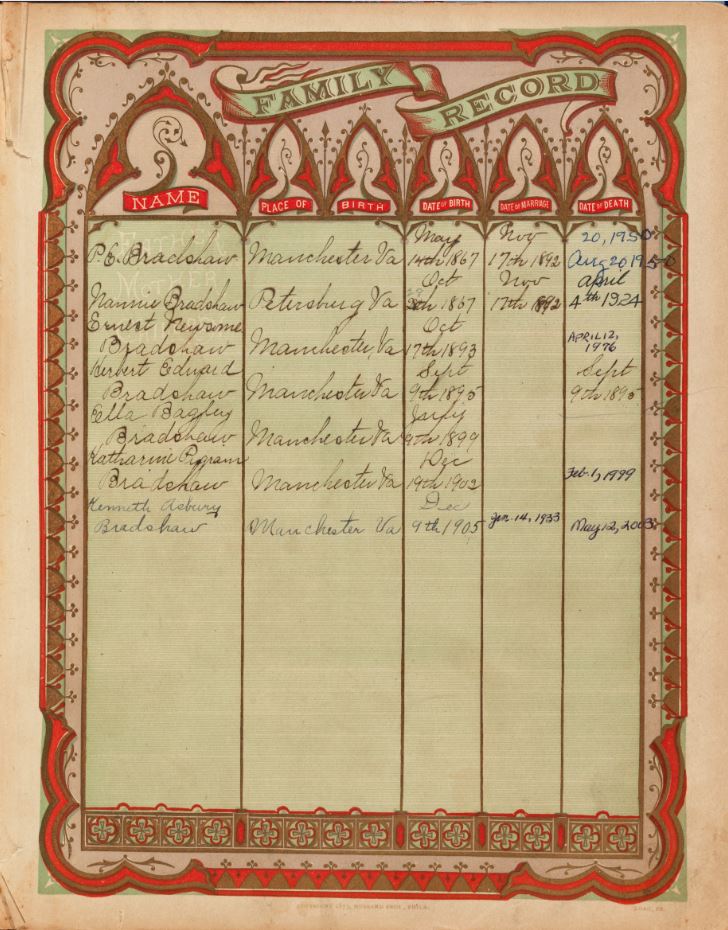 FAMILY RECORD
NAME PLACE OF BIRTH DATE OF BIRTH DATE OF MARRIAGE DATE OF DEATH
FATHER May Nov 20, 1950
P. E. Bradshaw Manchester Va 14th 1867 17th 1892 Aug 20 1950
MOTHER Oct Nov April
Nannie Bradshaw Petersburg Va 1867 17th 1892 4th 1924
Ernest Newsome Oct
Bradshaw Manchester, Va 17th 1893 APRIL 12, 1976
Herbert Edward Sept Sept
Bradshaw Manchester Va 9th 1895 9th 1895
Ella Bagley
Bradshaw Manchester Va 9th 1899
Katharine Pigram Dec
Bradshaw Manchester Va 19th 1902 Feb. 1, 1999
Kenneth Asbury Dec
Bradshaw Manchester Va 9th 1905 Jan. 14, 1933 May 12, 2003